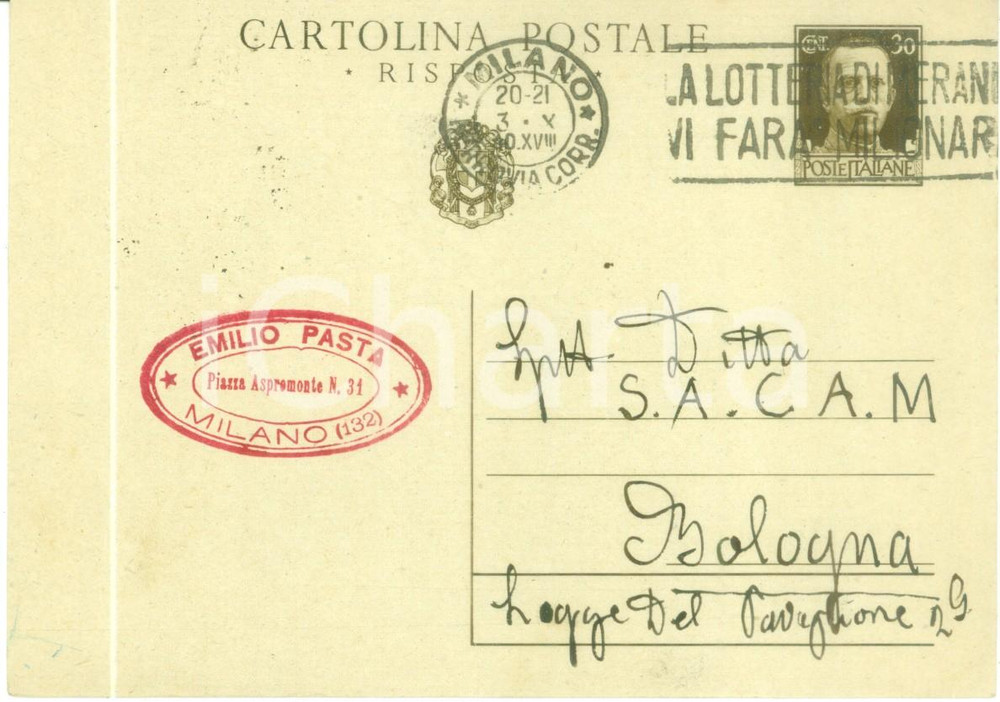 CARTOLINA POSTALE
RISPOSTA
MILANO
20-21
3 · X
40.XVIII
FERROVIA CORR.
LA LOTTERIA DI MERANO
VI FARA MILIONARI
CENT. 30
POSTE ITALIANE
iCharta
EMILIO PASTA
Piazza Aspromonte N. 31
MILANO (132)
Spett. Ditta
S.A.C.A.M
Bologna
Logge Del Pavaglione